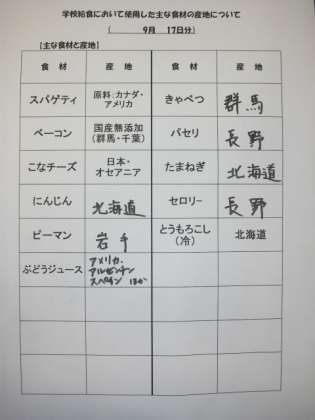 学校給食において使用した主な食材の産地について
（　9月　17日分）
【主な食材と産地】
食材　産地　食材　産地
スパゲティ　原料：カナダ・アメリカ　きゃべつ　群馬
ベーコン　国産無添加（群馬・千葉）　パセリ　長野
こなチーズ　日本・オセアニア　たまねぎ　北海道
にんじん　北海道　セロリー　長野
ピーマン　岩手　とうもろこし（冷）　北海道
ぶどうジュース　アメリカ．アルゼンチン　スペイン　ほか